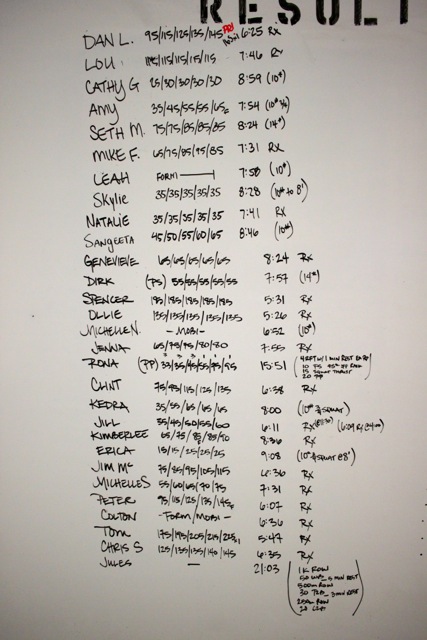 RESULT
DAN L. 95/115/125/135/145 6:25 Rx
LOU 115/115/115/115 7:46 Rx
CATHY G 25/30/30/30/30 8:59 (10#)
Amy 35/45/55/55/65 7:54
SETH M. 75/75/85/85/85 8:24 (14#)
MIKE F. 65/75/85/95/85 7:31 Rx
LEAH FORM 7:58 (10#)
Skylie 35/35/35/35/35 8:28 (10# to 8')
NATALIE 35/35/35/35/35 7:41 Rx
SANGEETA 45/50/55/60/65 8:46 (10#)
GENEVIEVE 65/65/65/65/65 8:24 Rx
DIRK (PS) 55/55/55/55/55 7:57 (14#)
SPENCER 185/185/185/185/185 5:31 Rx
OLLIE 135/135/135/135/135 5:26 Rx
MICHELLE N. - MOBI - 6:52 (10#)
JENNA 65/75/75/80/80 7:55 Rx
RONA (PP) 15:51
CLINT 75/95/115/125/135 6:38 Rx
KEDRA 35/55/65/65/65 8:00
JILL 35/45/50/55/60 6:11 Rx
KIMBERLEE 65/75/85/85/90 8:36 Rx
ERICA 15/15/25/25/25 9:08
JIM Mc 75/85/95/105/115 6:36 Rx
MICHELLE S 55/60/65/70/75 7:31 Rx
PETER 95/115/125/135/145 6:07 Rx
COLTON - FORM/MOBI - 6:36 Rx
Tom 175/195/205/215/225 5:47 Rx
CHRIS S 125/135/135/140/145 6:35 Rx
JULES — 21:03 1K ROW
500m ROW
250m ROW